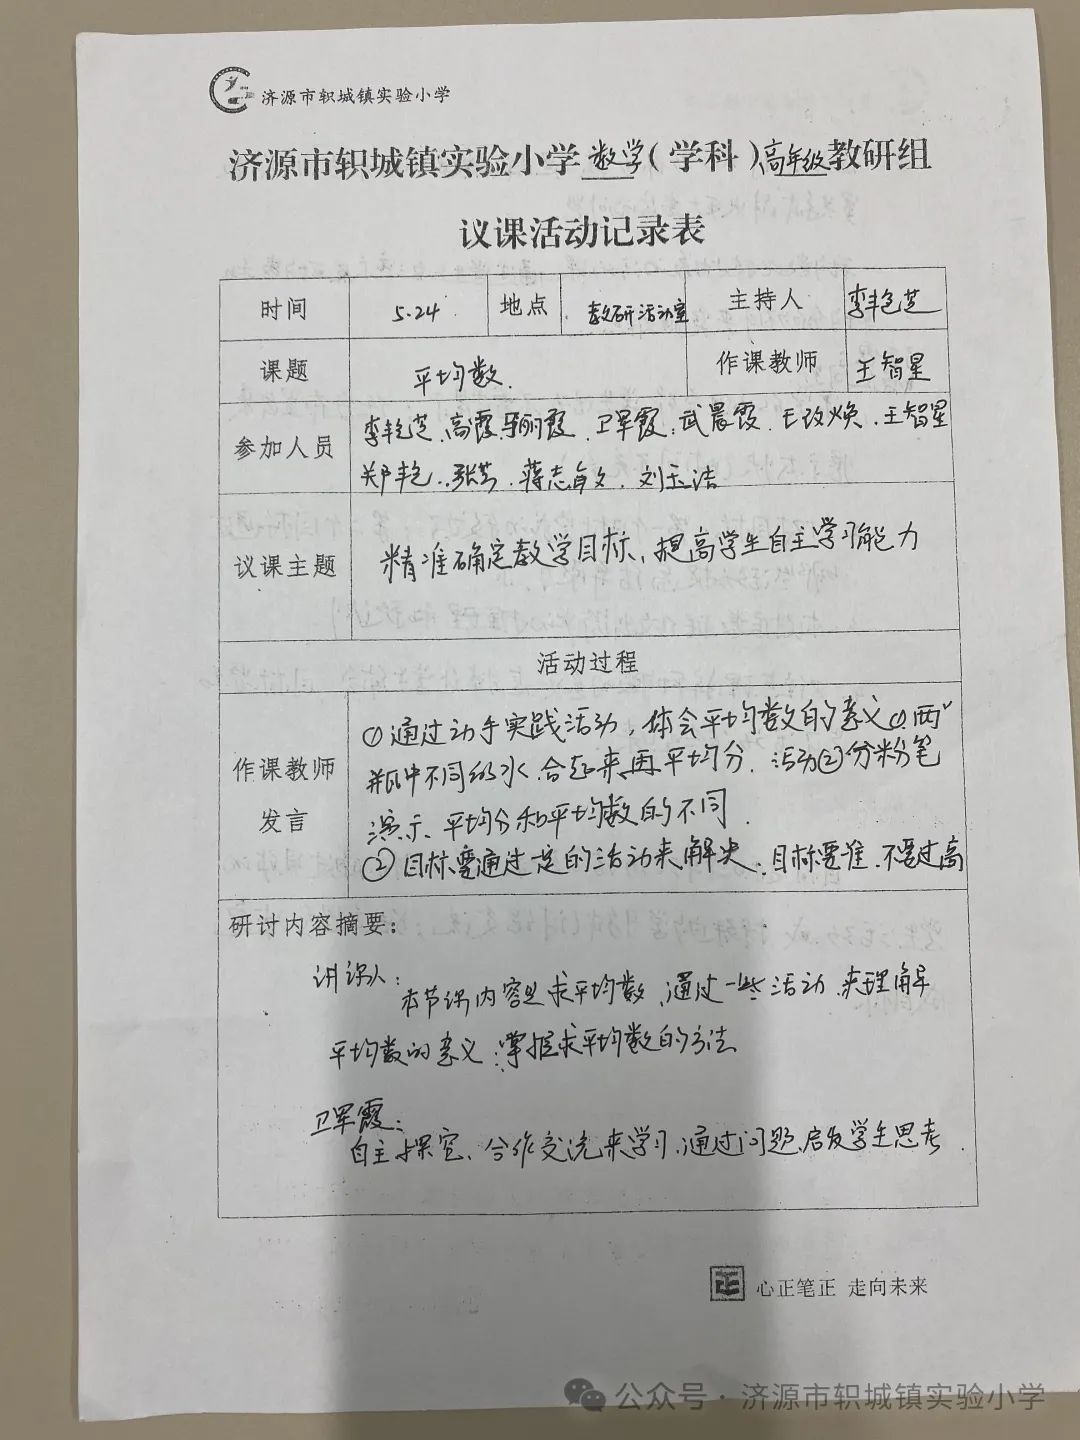 济源市轵城镇实验小学
济源市轵城镇实验小学 数学(学科)高年级教研组
议课活动记录表
时间 5.24 地点 教研活动室 主持人 李艳芝
课题 平均数. 作课教师 王智星
参加人员 李艳芝、高霞、丽霞、卫军霞、武晨霞、王改焕、王智星
郑艳、张芳、蒋志文、刘玉洁
议课主题 精准确定教学目标、提高学生自主学习能力
活动过程
作课教师发言 ①通过动手实践活动,体会平均数的意义①.两
瓶中不同的水.合起来再平均分.活动②分粉笔
演示、平均分和平均数的不同.
②目标要通过一定的活动来解决.目标要准.不要过高
研讨内容摘要:
讲课人:
本节课内容是求平均数.通过一些活动.来理解
平均数的意义;掌握求平均数的方法
卫军霞:
自主探究、合作交流来学习.通过问题.启发学生思考.
正 心正笔正 走向未来
公众号·济源市轵城镇实验小学